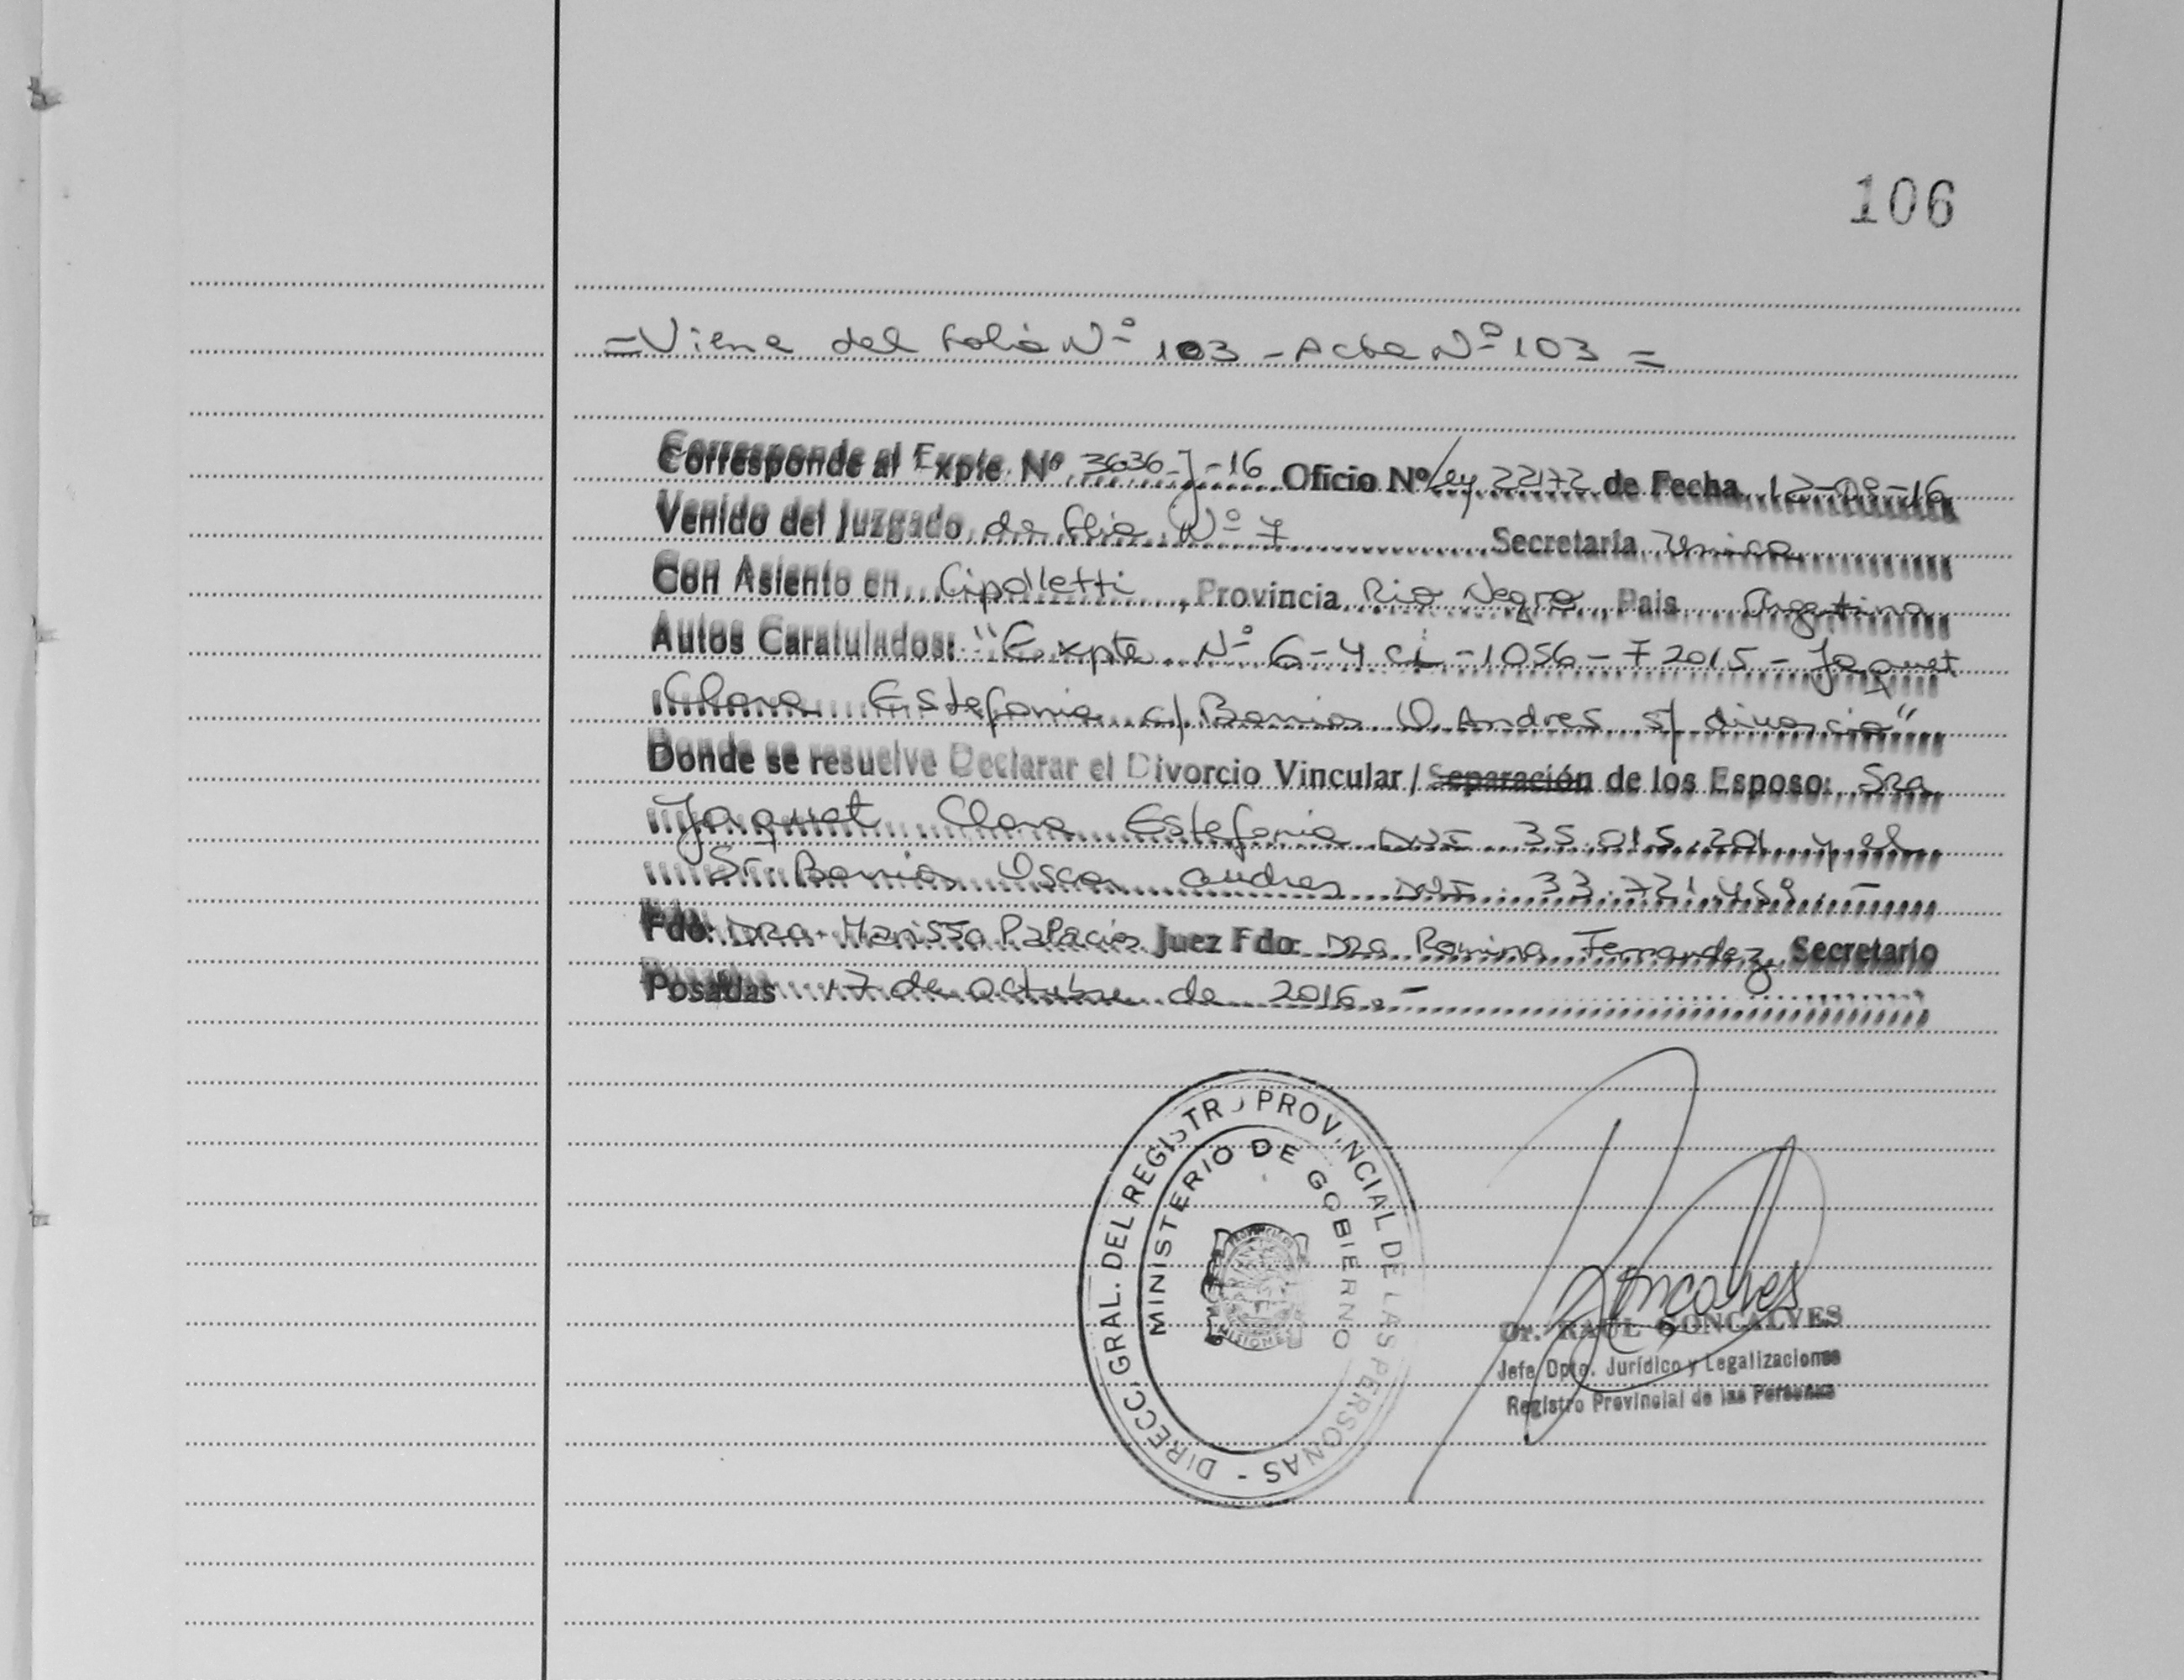 106
=Viene del folio Nº 103 - Acta Nº 103 =
Corresponde al Expte. Nº 3636-J-16 Oficio Nº/Ley 22172 de Fecha 12-09-16
Venido del Juzgado de flia Nº 7 Secretaría Unica
Con Asiento en Cipolletti, Provincia Rio Negro, Pais Argentina
Autos Caratulados: "Expte Nº G-4 CI-1056-F2015-Jaquet
Clara Estefania c/ Barria O. Andres s/ divorcio"
Donde se resuelve Declarar el Divorcio Vincular / Separación de los Esposo: Sra
Jaquet Clara Estefania DNI 35.015.201 y el
Sr Barria Oscar andres DNI
Fdo: Dra. Marissa Palacios Juez Fdo: Dra Romina Fernandez Secretario
Posadas 17 de octubre de 2016.-
DIRECC. GRAL. DEL REGISTRO PROVINCIAL DE LAS PERSONAS -
MINISTERIO DE GOBIERNO
MISIONES
Goncalves
Dr. RAUL GONCALVES
Jefe Dpto. Jurídico y Legalizaciones
Registro Provincial de las Personas